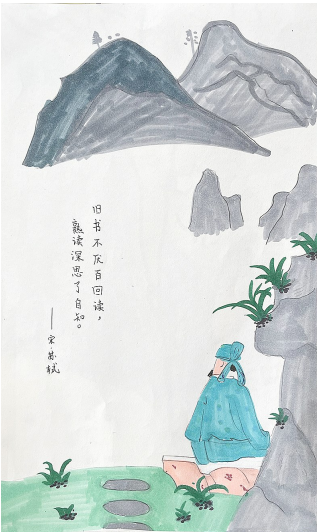 旧书不厌百回读，
熟读深思了自知。
——宋·苏轼